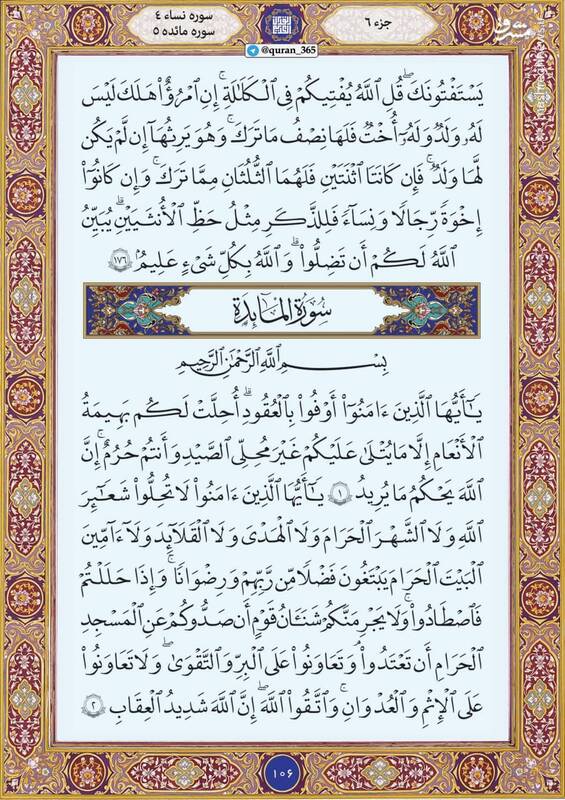 جزء ۶
سوره نساء ۴
سوره مائده ۵
@quran_365
مشرق
يَسْتَفْتُونَكَ قُلِ اللَّهُ يُفْتِيكُمْ فِي الْكَلَالَةِ ۚ إِنِ امْرُؤٌا۟ هَلَكَ لَيْسَ
لَهُۥ وَلَدٌ وَلَهُۥٓ أُخْتٌ فَلَهَا نِصْفُ مَا تَرَكَ ۚ وَهُوَ يَرِثُهَآ إِن لَّمْ يَكُن
لَّهَا وَلَدٌ ۚ فَإِن كَانَتَا اثْنَتَيْنِ فَلَهُمَا الثُّلُثَانِ مِمَّا تَرَكَ ۚ وَإِن كَانُوٓا۟
إِخْوَةً رِّجَالًا وَنِسَآءً فَلِلذَّكَرِ مِثْلُ حَظِّ الْأُنثَيَيْنِ ۗ يُبَيِّنُ
اللَّهُ لَكُمْ أَن تَضِلُّوا۟ ۗ وَاللَّهُ بِكُلِّ شَيْءٍ عَلِيمٌۢ ١٧٦
سُورَةُ الْمَائِدَةِ
بِسْمِ اللَّهِ الرَّحْمَٰنِ الرَّحِيمِ
يَٰٓأَيُّهَا الَّذِينَ ءَامَنُوٓا۟ أَوْفُوا۟ بِالْعُقُودِ ۚ أُحِلَّتْ لَكُم بَهِيمَةُ
الْأَنْعَٰمِ إِلَّا مَا يُتْلَىٰ عَلَيْكُمْ غَيْرَ مُحِلِّي الصَّيْدِ وَأَنتُمْ حُرُمٌ ۗ إِنَّ
اللَّهَ يَحْكُمُ مَا يُرِيدُ ١ يَٰٓأَيُّهَا الَّذِينَ ءَامَنُوا۟ لَا تُحِلُّوا۟ شَعَٰٓئِرَ
اللَّهِ وَلَا الشَّهْرَ الْحَرَامَ وَلَا الْهَدْيَ وَلَا الْقَلَٰٓئِدَ وَلَآ ءَآمِّينَ
الْبَيْتَ الْحَرَامَ يَبْتَغُونَ فَضْلًا مِّن رَّبِّهِمْ وَرِضْوَٰنًا ۚ وَإِذَا حَلَلْتُمْ
فَاصْطَادُوا۟ ۚ وَلَا يَجْرِمَنَّكُمْ شَنَـَٔانُ قَوْمٍ أَن صَدُّوكُمْ عَنِ الْمَسْجِدِ
الْحَرَامِ أَن تَعْتَدُوا۟ ۘ وَتَعَاوَنُوا۟ عَلَى الْبِرِّ وَالتَّقْوَىٰ ۖ وَلَا تَعَاوَنُوا۟
عَلَى الْإِثْمِ وَالْعُدْوَٰنِ ۚ وَاتَّقُوا۟ اللَّهَ ۖ إِنَّ اللَّهَ شَدِيدُ الْعِقَابِ ٢
۱۰۶